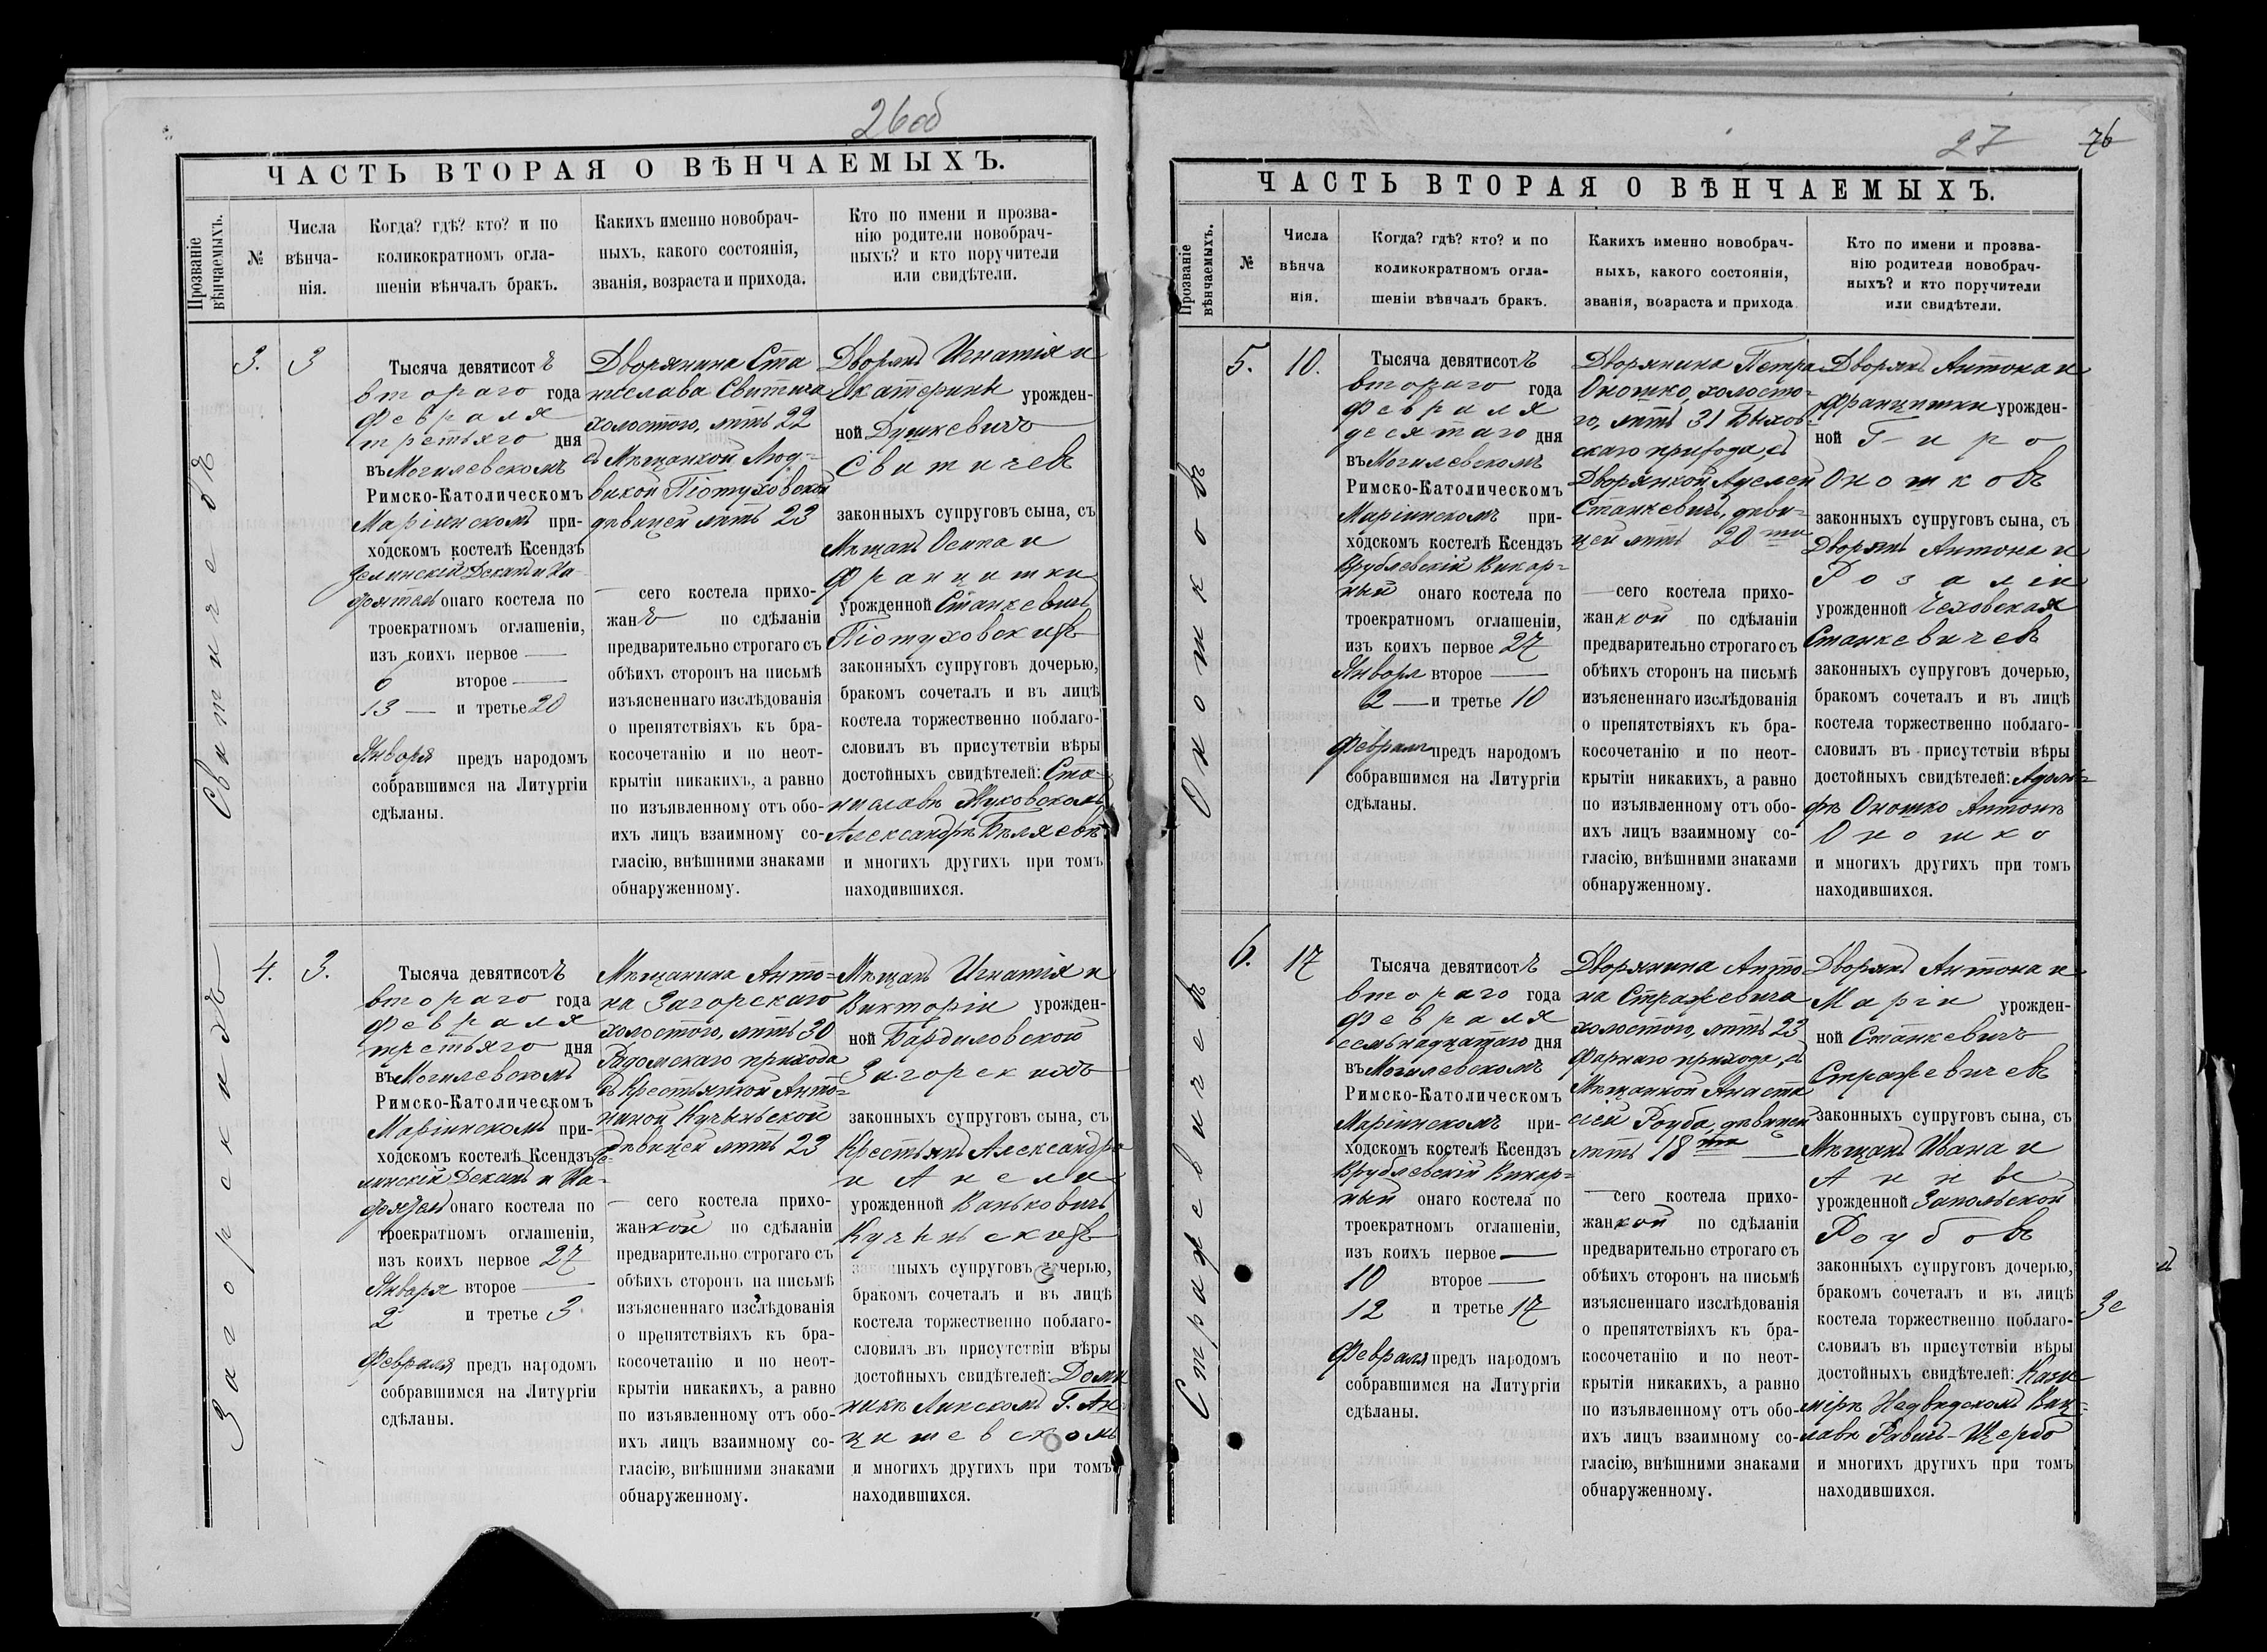 26об
ЧАСТЬ ВТОРАЯ О ВѢНЧАЕМЫХЪ.
Прозваніе
вѣнчаемыхъ.
№
Числа
вѣнча-
нія.
Когда? гдѣ? кто? и по
коликократномъ огла-
шеніи вѣнчалъ бракъ.
Какихъ именно новобрач-
ныхъ, какого состоянія,
званія, возраста и прихода.
Кто по имени и прозва-
нію родители новобрач-
ныхъ? и кто поручители
или свидѣтели.
Свитичевъ
3.
3
Тысяча девятисотъ
втораго года
Февраля
третьяго дня
въ Могилевскомъ
Римско-Католическомъ
Маріинскомъ при-
ходскомъ костелѣ Ксендзъ
Зелинскій Деканъ и На-
стоятель онаго костела по
троекратномъ оглашеніи,
изъ коихъ первое —
6 второе —
13 — и третье 20
Января предъ народомъ
собравшимся на Литургіи
сдѣланы.
Дворянина Ста
нислава Свитича
холостого, лѣтъ 22
съ Мѣщанкой Люд-
викой Піотуховской
дѣвицей лѣтъ 23
— сего костела прихо-
жанъ по сдѣланіи
предварительно строгаго съ
обѣихъ сторонъ на письмѣ
изъясненнаго изслѣдованія
о препятствіяхъ къ бра-
косочетанію и по неот-
крытіи никакихъ, а равно
по изъявленному отъ обо-
ихъ лицъ взаимному со-
гласію, внѣшними знаками
обнаруженному.
Дворянъ Игнатія и
Екатерины урожден-
ной Душкевичъ
Свитичевъ
законныхъ супруговъ сына, съ
Мѣщанъ Осипа и
Францишки
урожденной Станкевичъ
Піотуховскихъ
законныхъ супруговъ дочерью,
бракомъ сочеталъ и въ лицѣ
костела торжественно поблаго-
словилъ въ присутствіи вѣры
достойныхъ свидѣтелей: Ста-
ниславѣ Жуковскомъ
Александрѣ Бѣляевѣ
и многихъ другихъ при томъ
находившихся.
Загорскихъ
4.
3.
Тысяча девятисотъ
втораго года
Февраля
третьяго дня
въ Могилевскомъ
Римско-Католическомъ
Маріинскомъ при-
ходскомъ костелѣ Ксендзъ Зе-
линскій Деканъ и На-
стоятель онаго костела по
троекратномъ оглашеніи,
изъ коихъ первое 27
Января второе —
2 и третье 3
Февраля предъ народомъ
собравшимся на Литургіи
сдѣланы.
Мѣщанина Анто-
на Загорскаго
холостого, лѣтъ 30
Радомскаго прихода
съ Крестьянкой Анто-
ниной Кучыньской
дѣвицей лѣтъ 23
— сего костела прихо-
жанкой по сдѣланіи
предварительно строгаго съ
обѣихъ сторонъ на письмѣ
изъясненнаго изслѣдованія
о препятствіяхъ къ бра-
косочетанію и по неот-
крытіи никакихъ, а равно
по изъявленному отъ обо-
ихъ лицъ взаимному со-
гласію, внѣшними знаками
обнаруженному.
Мѣщанъ Игнатія и
Викторіи урожден-
ной Бардиловской
Загорскихъ
законныхъ супруговъ сына, съ
Крестьянъ Александра
и Анели
урожденной Ваньковичъ
Кучыньскихъ
законныхъ супруговъ дочерью,
бракомъ сочеталъ и въ лицѣ
костела торжественно поблаго-
словилъ въ присутствіи вѣры
достойныхъ свидѣтелей: Доми
никѣ Линскомъ Г. Ан-
цишевскомъ
и многихъ другихъ при томъ
находившихся.
27 76
ЧАСТЬ ВТОРАЯ О ВѢНЧАЕМЫХЪ.
Прозваніе
вѣнчаемыхъ.
№
Числа
вѣнча
нія.
Когда? гдѣ? кто? и по
коликократномъ огла-
шеніи вѣнчалъ бракъ.
Какихъ именно новобрач-
ныхъ, какого состоянія,
званія, возраста и прихода
Кто по имени и прозва-
нію родители новобрач-
ныхъ? и кто поручители
или свидѣтели.
Оношковъ
5.
10.
Тысяча девятисотъ
втораго года
Февраля
десятаго дня
въ Могилевскомъ
Римско-Католическомъ
Маріинскомъ при-
ходскомъ костелѣ Ксендзъ
Врублевскій Викар-
ный онаго костела по
троекратномъ оглашеніи,
изъ коихъ первое 27
Января второе —
2 — и третье 10
Февраля предъ народомъ
собравшимся на Литургіи
сдѣланы.
Дворянина Петра
Оношко, холосто-
го, лѣтъ 31 Быхов-
скаго прихода, съ
Дворянкой Аделей
Станкевичъ, дѣви-
цей лѣтъ 20 ти
— сего костела прихо-
жанкой по сдѣланіи
предварительно строгаго съ
обѣихъ сторонъ на письмѣ
изъясненнаго изслѣдованія
о препятствіяхъ къ бра-
косочетанію и по неот-
крытіи никакихъ, а равно
по изъявленному отъ обо-
ихъ лицъ взаимному со-
гласію, внѣшними знаками
обнаруженному.
Дворянъ Антона и
Францишки урожден-
ной Гиро
Оношковъ
законныхъ супруговъ сына, съ
Дворянъ Антона и
Розаліи
урожденной Чеховская
Станкевичевъ
законныхъ супруговъ дочерью,
бракомъ сочеталъ и въ лицѣ
костела торжественно поблаго-
словилъ въ присутствіи вѣры
достойныхъ свидѣтелей: Адоль-
фѣ Оношко Антонѣ
Оношко
и многихъ другихъ при томъ
находившихся.
Стражевичевъ
6.
17
Тысяча девятисотъ
втораго года
Февраля
семьнадцатаго дня
въ Могилевскомъ
Римско-Католическомъ
Маріинскомъ при-
ходскомъ костелѣ Ксендзъ
Врублевскій Викар-
ный онаго костела по
троекратномъ оглашеніи,
изъ коихъ первое —
10 второе —
12 и третье 17
Февраля предъ народомъ
собравшимся на Литургіи
сдѣланы.
Дворянина Анто-
на Стражевича
холостого, лѣтъ 23
Фарнаго прихода, съ
Мѣщанкой Анаста
сіей Роуба, дѣвицей
лѣтъ 18 ти —
— сего костела прихо-
жанкой по сдѣланіи
предварительно строгаго съ
обѣихъ сторонъ на письмѣ
изъясненнаго изслѣдованія
о препятствіяхъ къ бра-
косочетанію и по неот-
крытіи никакихъ, а равно
по изъявленному отъ обо-
ихъ лицъ взаимному со-
гласію, внѣшними знаками
обнаруженному.
Дворянъ Антона и
Маріи урожден-
ной Станкевичъ
Стражевичевъ
законныхъ супруговъ сына, съ
Мѣщанъ Ивана и
Анны
урожденной Запольской
Роубовъ
законныхъ супруговъ дочерью,
бракомъ сочеталъ и въ лицѣ
костела торжественно поблаго-
словилъ въ присутствіи вѣры
достойныхъ свидѣтелей: Кази-
мірѣ Недвѣдскомъ Вац-
лавѣ Равичъ-Щербо
и многихъ другихъ при томъ
находившихся.